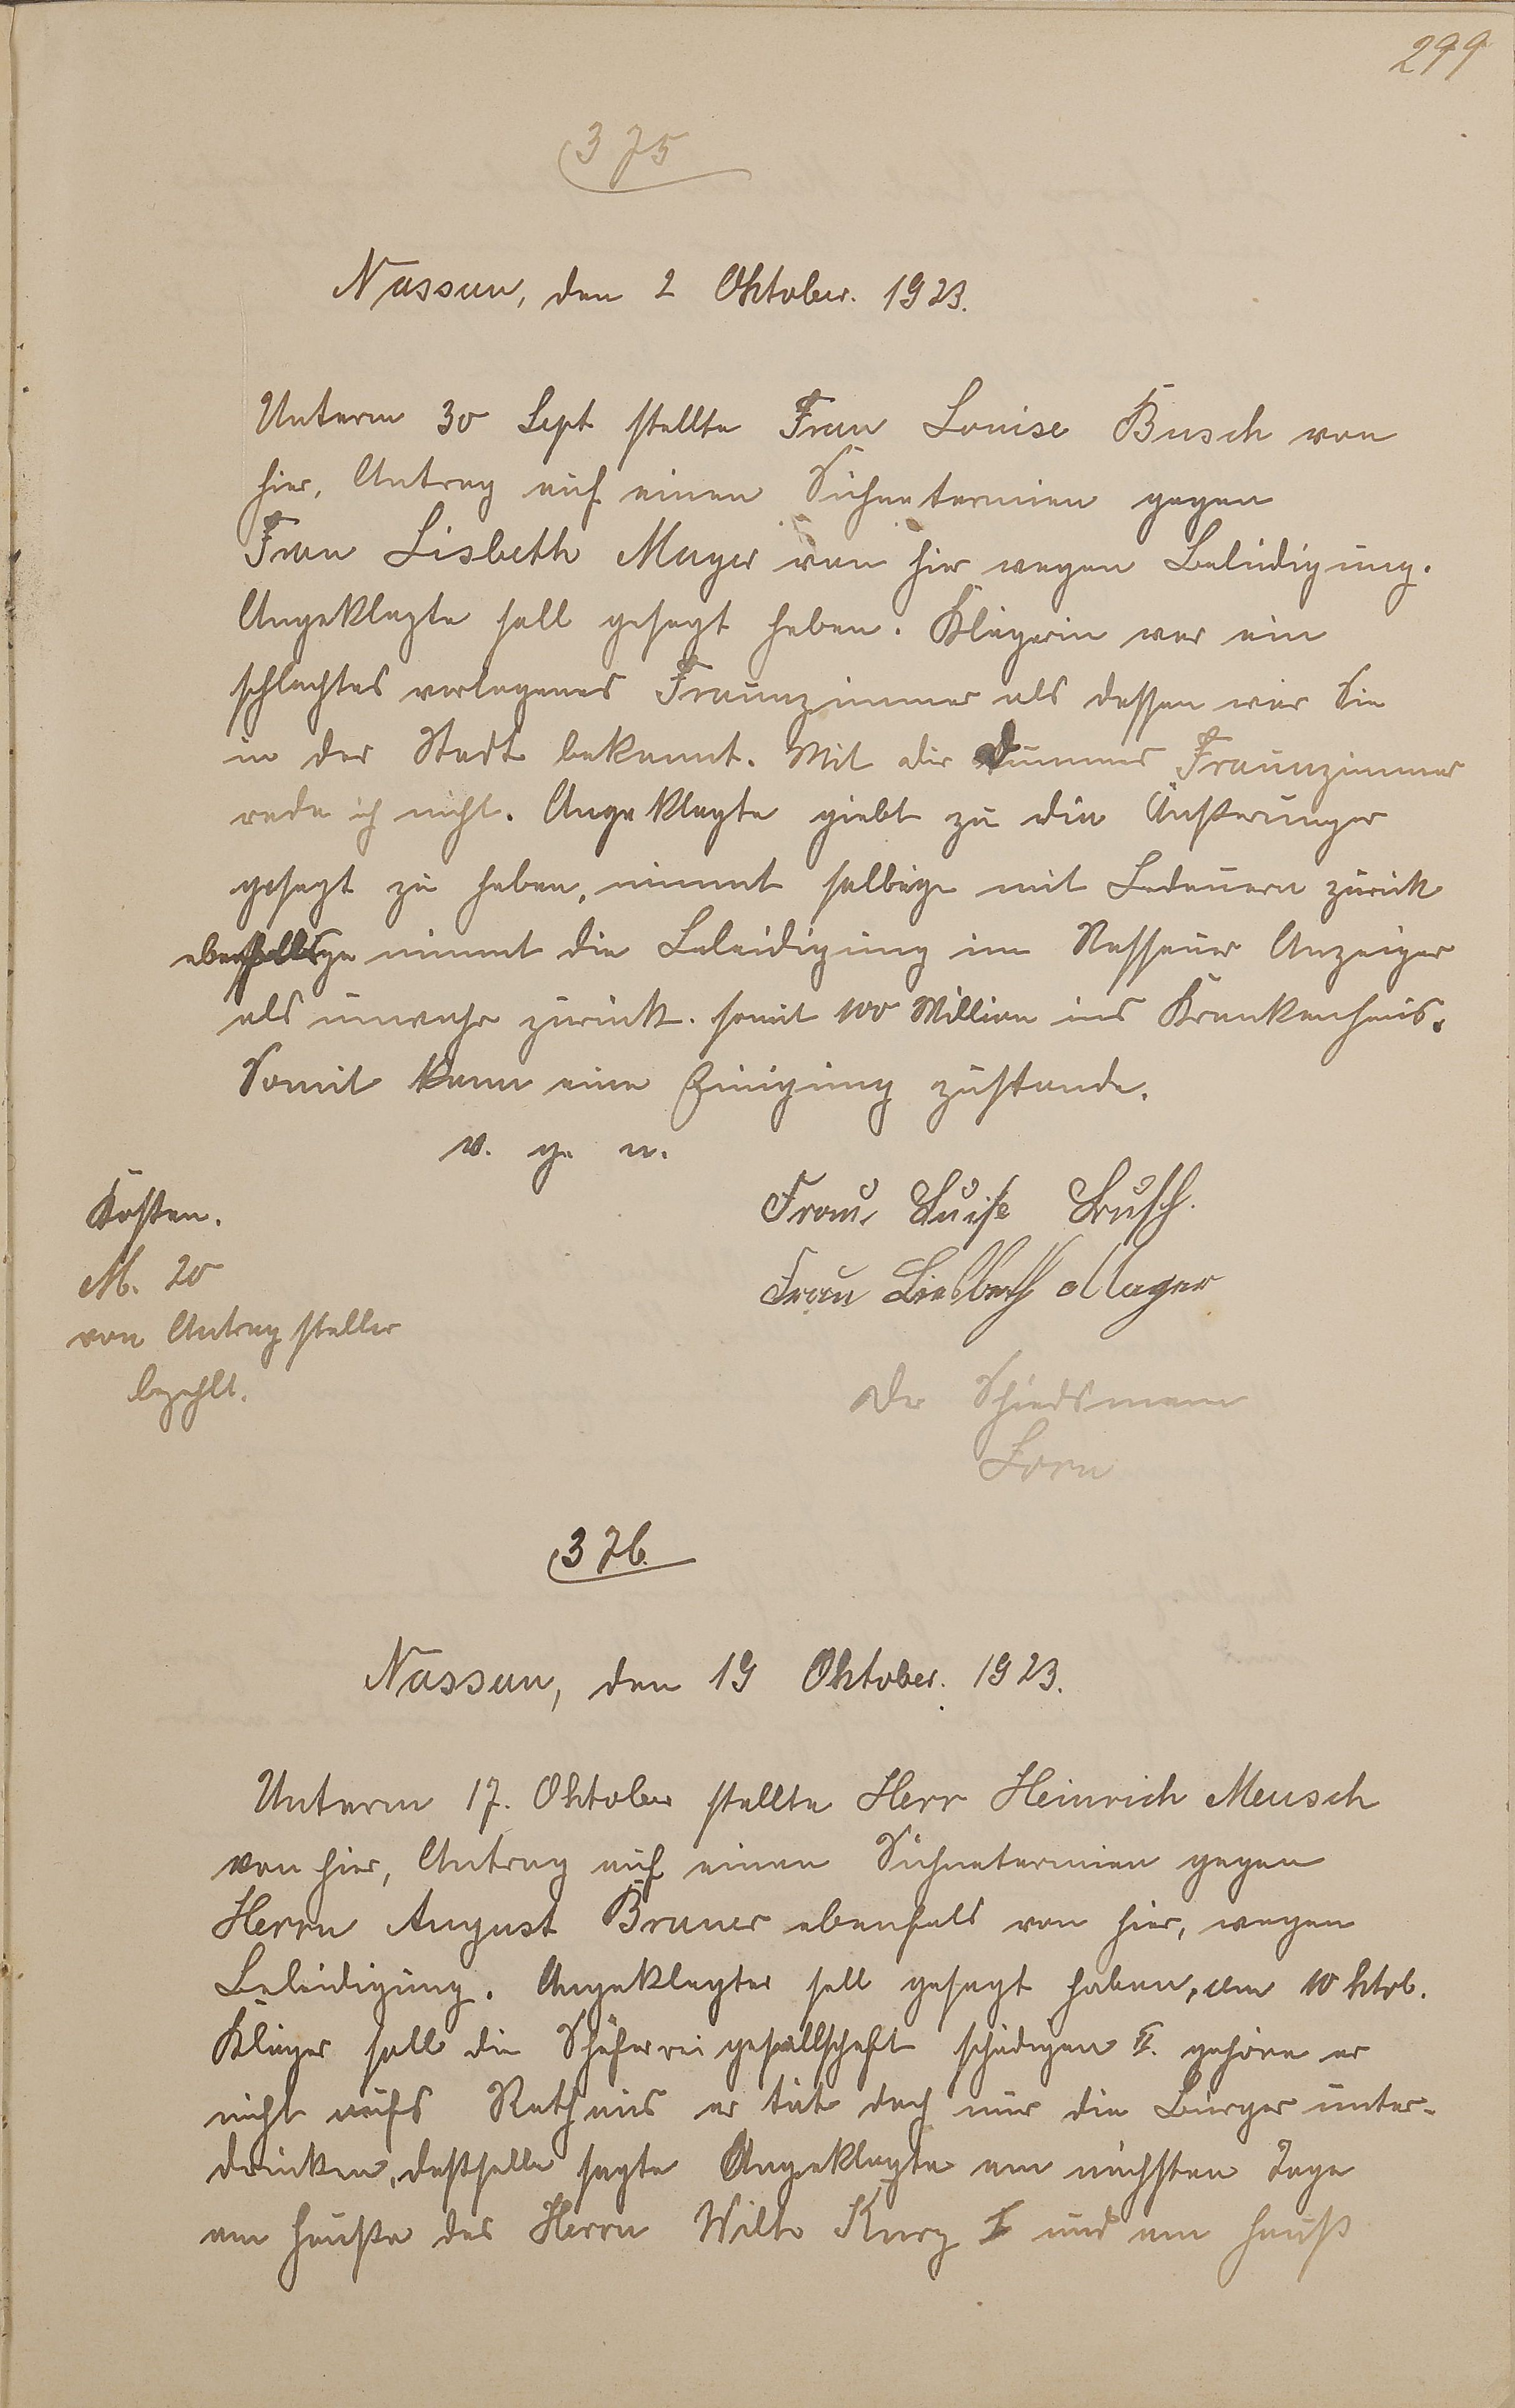 299
375
Nassau, den 2 Oktober. 1923.
Unterm 30 Sept stellte Frau Louise Busch von
hier, Antrag auf einen Sühnetermien gegen
Frau Lisbeth Mager von hier wegen Beleidigung.
Angeklagte soll gesagt haben. Klägerin wär ein
schlechtes verlogenes Frauenzimmer als dessen wär Sie
in der Stadt bekannt. Mit dir dummes Frauenzimmer
rede ich nicht. Angeklagte giebt zu die Äußerunger
gesagt zu haben, nimmt selbige mit Bedauern zurück
nimmt die Beleidigung im Nassauer Anzeiger
als unwahr zurück. somit 100 Million ins Krankenhaus.
Somit kam eine Einigung zustande.
v. g. u.
Kosten.
M. 20
von Antragsteller
bezahlt.
Frau Luise Busch.
Frau Liesbeth Mager
Der Schiedsmann
Born
376.
Nassau, den 19 Oktober. 1923.
Unterm 17. Oktober stellte Herr Heinrich Meusch
von hier, Antrag auf einen Sühnetermien gegen
Herrn August Bruner ebenfals von hier, wegen
Beleidigung. Angeklagter soll gesagt haben, am 10 Oktob.
Kläger soll die Schäfereigesellschaft schädigen II. gehöre er
nicht aufs Rathaus er tät doch nur die Bürger unter-
drücken, deßselbe sagte Angeklagte am nächsten Tage
am Hauße des Herrn Wilh Kurz I und am Hauß